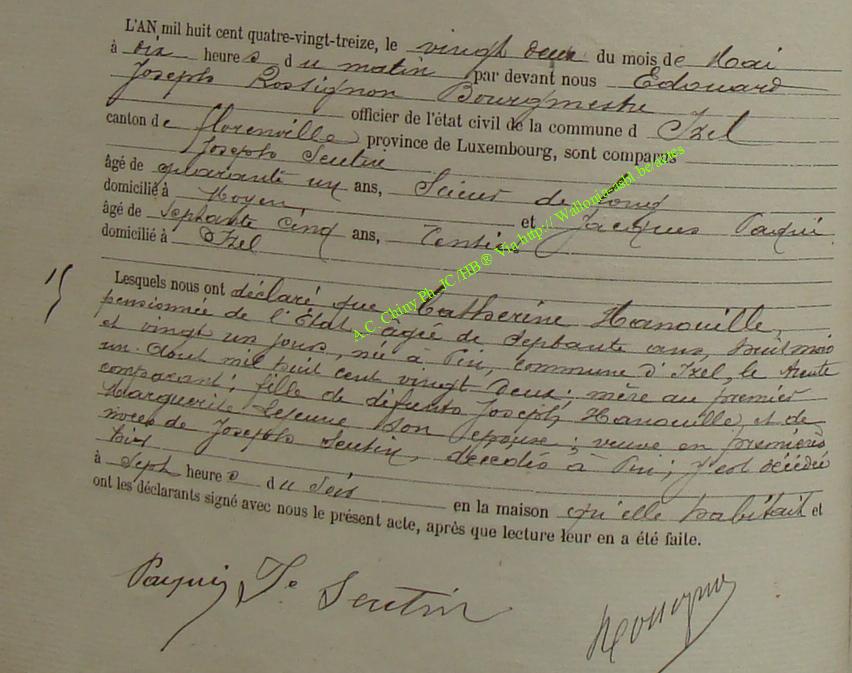 L'AN mil huit cent quatre-vingt-treize, le vingt deux du mois de Mai
à dix heures du matin par devant nous Edouard
Joseph Rossignon Bourgmestre
officier de l'état civil de la commune d Izel
canton de Florenville province de Luxembourg, sont comparus
Joseph Sentin
âgé de quarante un ans, Scieur de long
domicilié à Moyen et Jacques Paquis
âgé de septante cinq ans, Rentier
domicilié à Izel
15
Lesquels nous ont déclaré que Catherine Hanouille,
pensionnée de l'Etat, agée de septante ans, huit mois
et vingt un jours, née à Pin, commune d'Izel, le trente
un Aout mil huit cent vingt deux; mère au premier
comparant; fille de défunts Joseph Hanouille et de
Marguerite Lejeune son épouse; veuve en premières
noces de Joseph Sentin, décédés à Pin; y est décédée
hier
à sept heures du soir en la maison qu'elle habitait et
ont les déclarants signé avec nous le présent acte, après que lecture leur en a été faite.
Paquis Je Sentin Rossignon
A.C. Chiny Ph. JC/HB ® Via http// Wallonia-asbl.be/actes